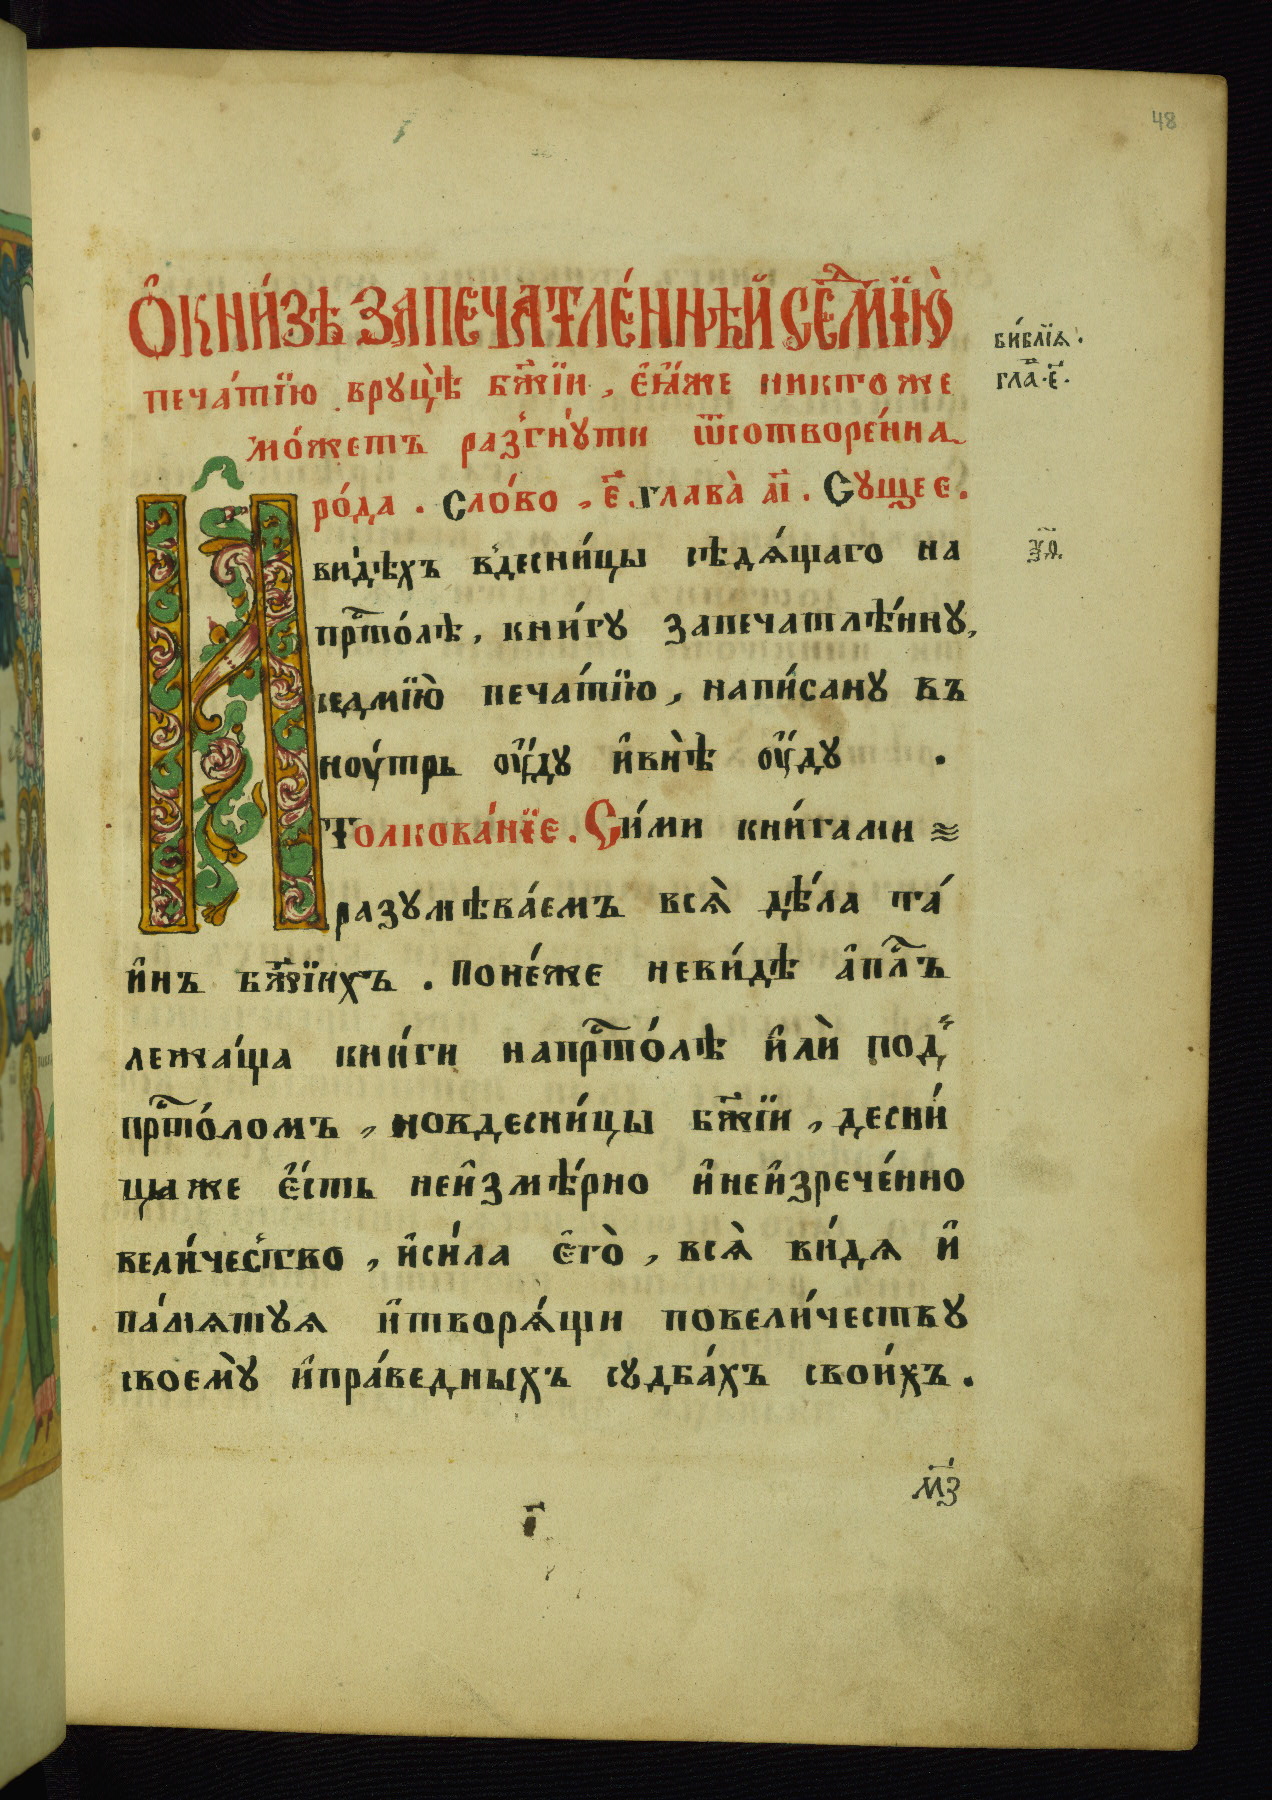 48
О҆ КНИ́ЗѢ ЗАПЕЧАТЛЕ́ННѢЙ СЕ҃ДМЇЮ̀
печа́тїю вруцѣ̀ бж҃їи, є҆ѧ҆́же никтоже
мо́жетъ разгну́ти ѿсотворе́нна
ро́да . Сло́во , є҃ . глава̀ аі҃ . Сущее .
библі́ѧ .
гла҃ . є҃ .
И҆
ви́дѣхъ вдесни́цы сѣдѧ́щаго на
зч҃а.
прⷭ҇то́лѣ, кни́гу запечатлѣ́нну,
седмїю̀ печа́тїю, напи́сану въ
ноу́трь ѹ҆́ду и҆внѣ̀ ѹ҆́ду .
Толкова́нїе . Си́ми кни́гами
разумѣва́емъ всѧ̀ дѣ́ла та́
и҆нъ бж҃їихъ . поне́же неви́дѣ а҆пл҃ъ
лежа́ща кни́ги напрⷭ҇то́лѣ и҆лѝ под
прⷭ҇то́ломъ, новдесни́цы бж҃їи, десни́
цаже є҆́сть неи҆змѣ́рно и҆неи҆зрече́нно
вели́чество, и҆си́ла є҆го̀, всѧ̀ ви́дѧ и҆
па́мѧтуѧ и҆творѧ́щи повели́честву
своемꙋ̀ и҆пра́ведныхъ судба́хъ свои́хъ .
м҃з
і҃